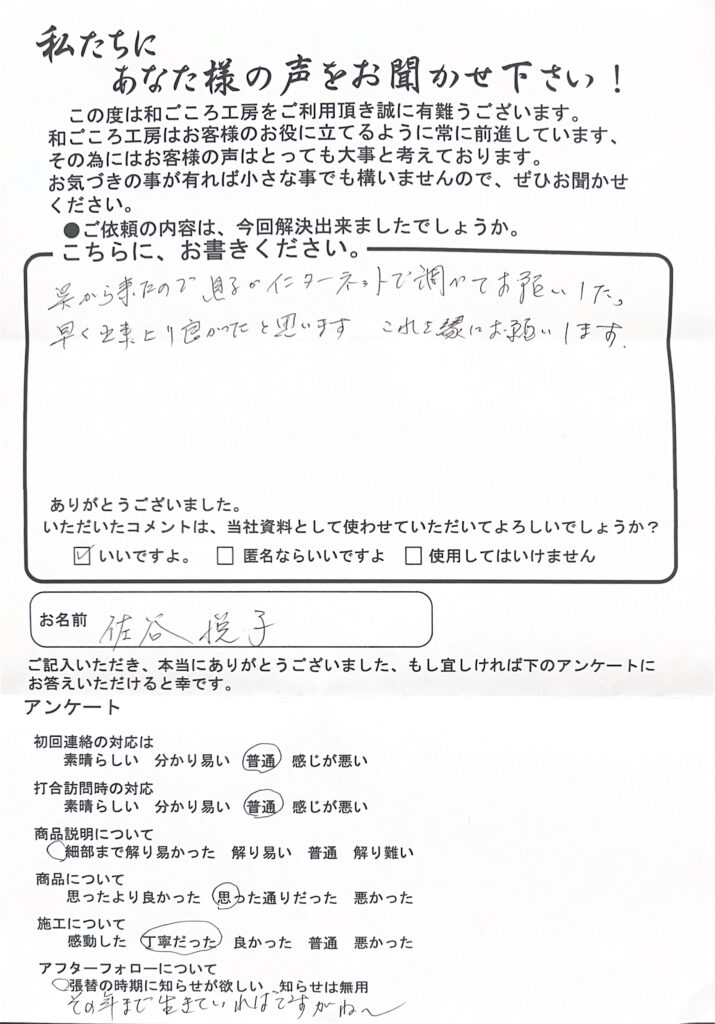 私たちに
あなた様の声をお聞かせ下さい！
この度は和ごころ工房をご利用頂き誠に有難うございます。
和ごころ工房はお客様のお役に立てるように常に前進しています、
その為にはお客様の声はとっても大事と考えております。
お気づきの事が有れば小さな事でも構いませんので、ぜひお聞かせ
ください。
●ご依頼の内容は、今回解決出来ましたでしょうか。
こちらに、お書きください。
呉から来たので 息子がインターネットで調べてお願いした。
早く出来上り良かったと思います これを縁にお願いします.
ありがとうございました。
いただいたコメントは、当社資料として使わせていただいてよろしいでしょうか？
☑ いいですよ。 □ 匿名ならいいですよ □ 使用してはいけません
お名前 佐谷 悦子
ご記入いただき、本当にありがとうございました、もし宜しければ下のアンケートに
お答えいただけると幸です。
アンケート
初回連絡の対応は
素晴らしい 分かり易い 普通 感じが悪い
打合訪問時の対応
素晴らしい 分かり易い 普通 感じが悪い
商品説明について
細部まで解り易かった 解り易い 普通 解り難い
商品について
思ったより良かった 思った通りだった 悪かった
施工について
感動した 丁寧だった 良かった 普通 悪かった
アフターフォローについて
張替の時期に知らせが欲しい 知らせは無用
その年まで生きていればですがね〜